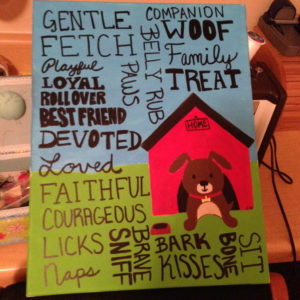 GENTLE
COMPANION
WOOF
FETCH
BELLY RUB
Family
Playful
PAWS
TREAT
LOYAL
ROLL OVER
BEST FRIEND
HOME
DEVOTED
Loved
FAITHFUL
COURAGEOUS
LICKS
BRAVE
BARK
SIT
Naps
SNIFF
KISSES
BONE